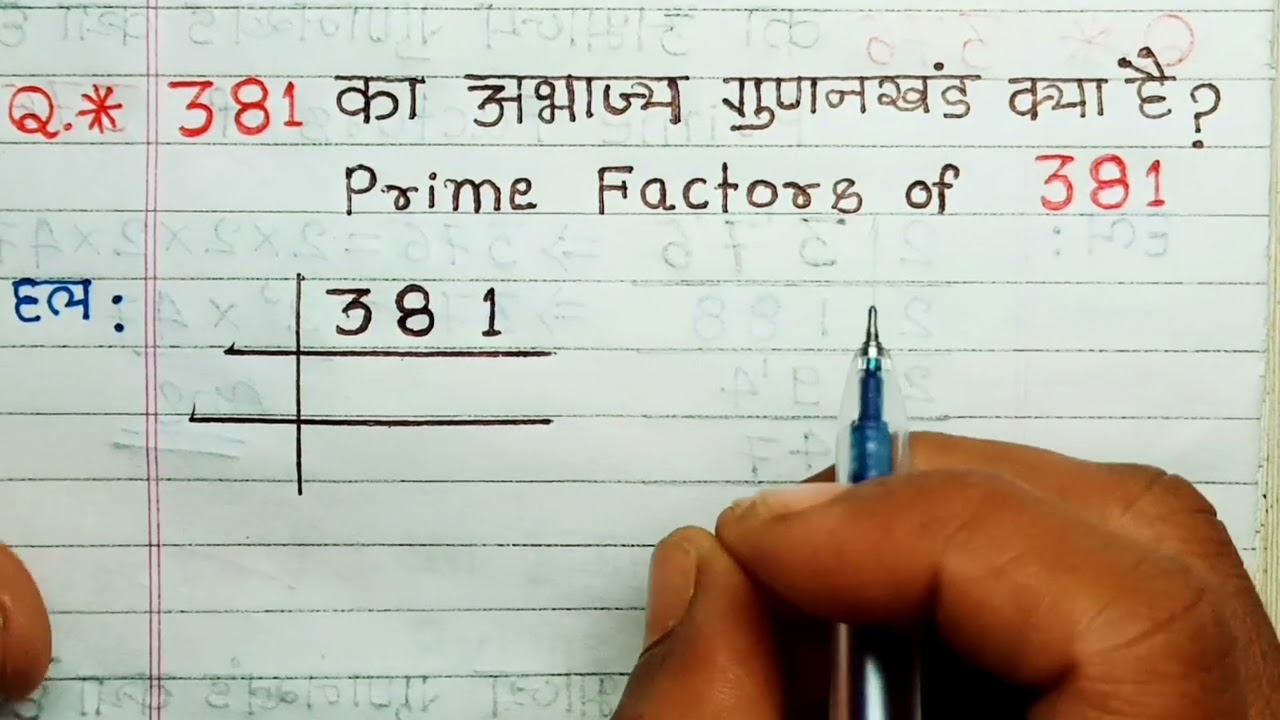 Q.* 381 का अभाज्य गुणनखंड क्या है?
Prime Factors of 381
हल : 381